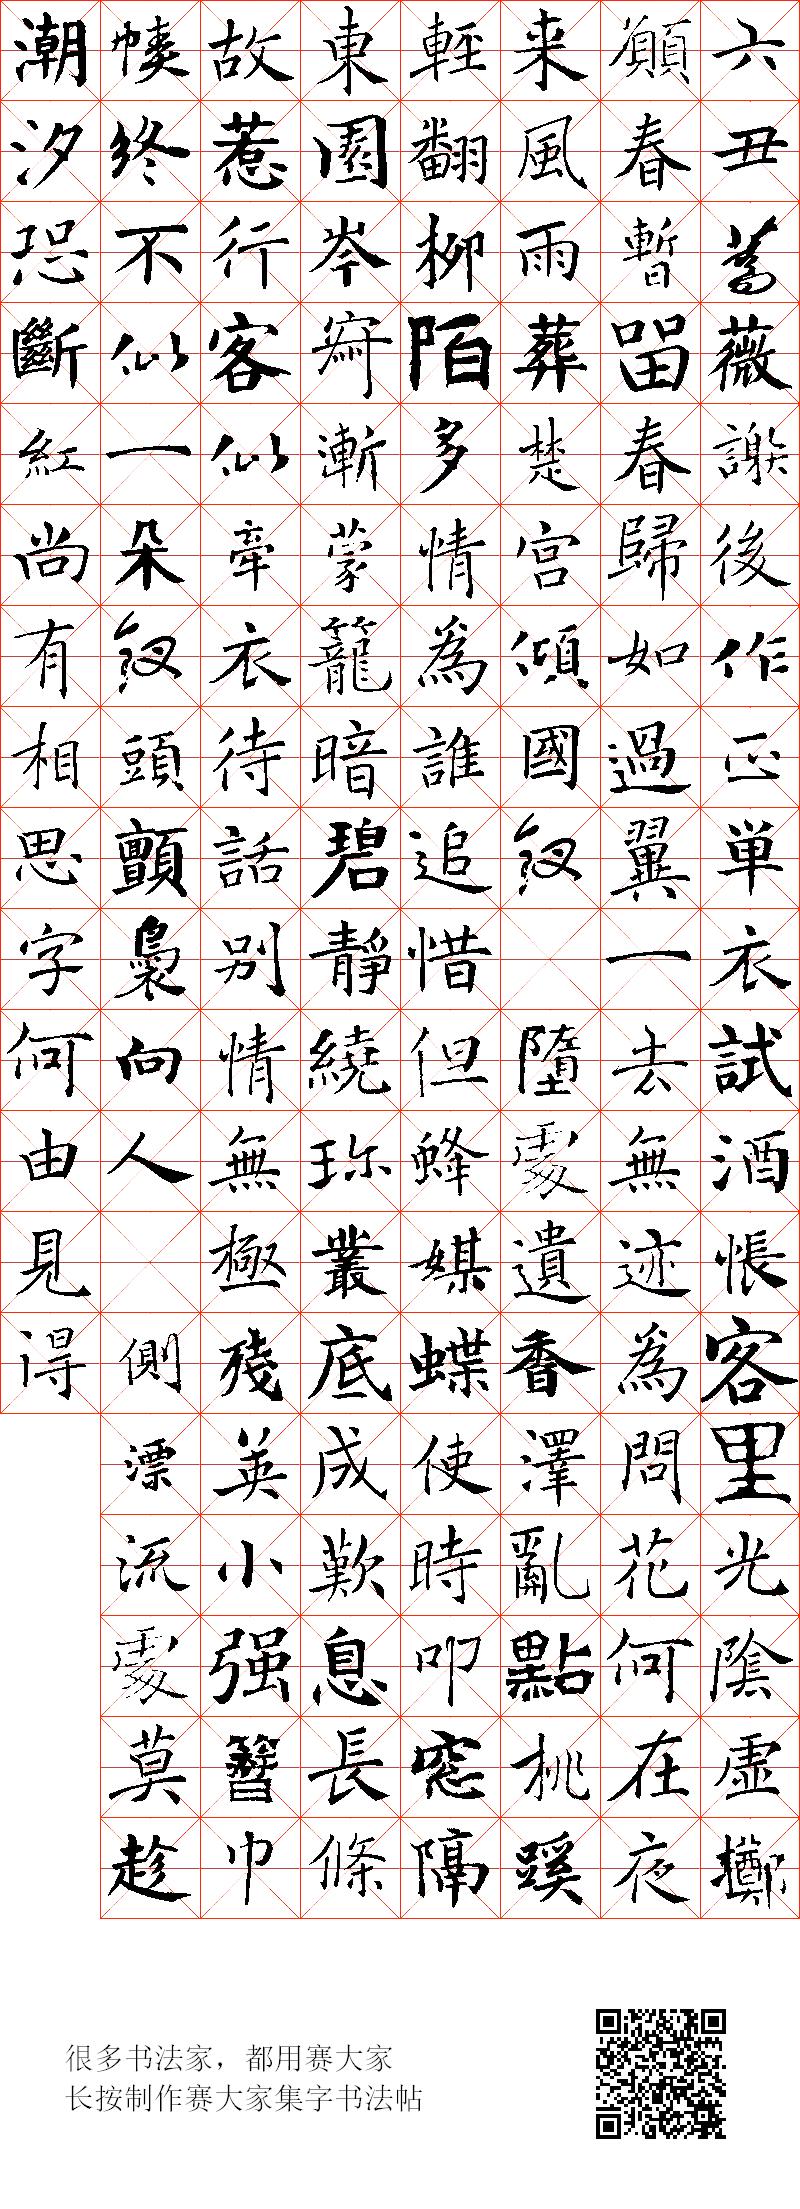 六丑蔷薇謝後作正単衣試酒悵客里光陰虛擲
願春暫留春歸如過翼一去無迹為問花何在夜
来風雨葬楚宮傾國釵 墮處遺香澤亂點桃蹊
輕翻柳陌多情為誰追惜但蜂媒蝶使時叩窓隔
東園岑寂漸蒙籠暗碧靜繞珍叢底成歎息長條
故惹行客似牽衣待話别情無極殘英小强簪巾
幘終不似一朵釵頭顫裊向人 側漂流處莫趁
潮汐恐斷紅尚有相思字何由見得
很多书法家，都用赛大家
长按制作赛大家集字书法帖